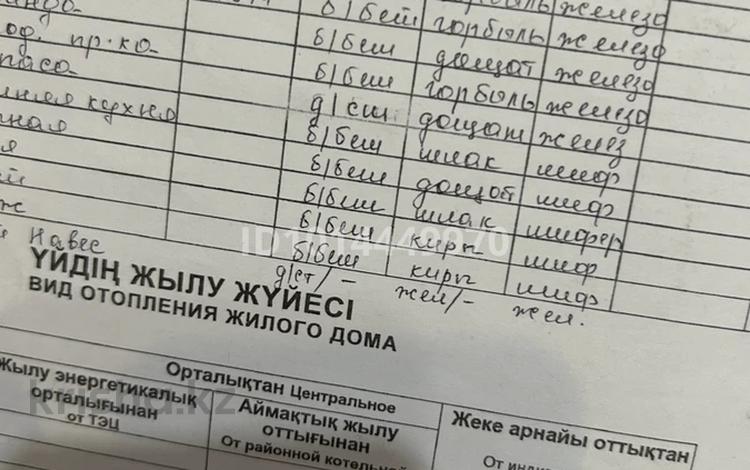 б/беш горбыль железо
од. пр.ка б/беш дощат железо
паса б/беш горбыль железо
кухня д/сш дощат желез
ная б/беш шлак шиф
я б/беш дощат шиф
й б/беш шлак шифер
ж б/беш кирп шиф
Навес б/беш кирп шиф
д/ст/- жел/- жел.
ҮЙДІҢ ЖЫЛУ ЖҮЙЕСІ
ВИД ОТОПЛЕНИЯ ЖИЛОГО ДОМА
Орталықтан Центральное
Жылу энергетикалық орталығынан
от ТЭЦ
Аймақтық жылу оттығынан
От районной котельной
Жеке арнайы оттықтан
От
krisha.kz